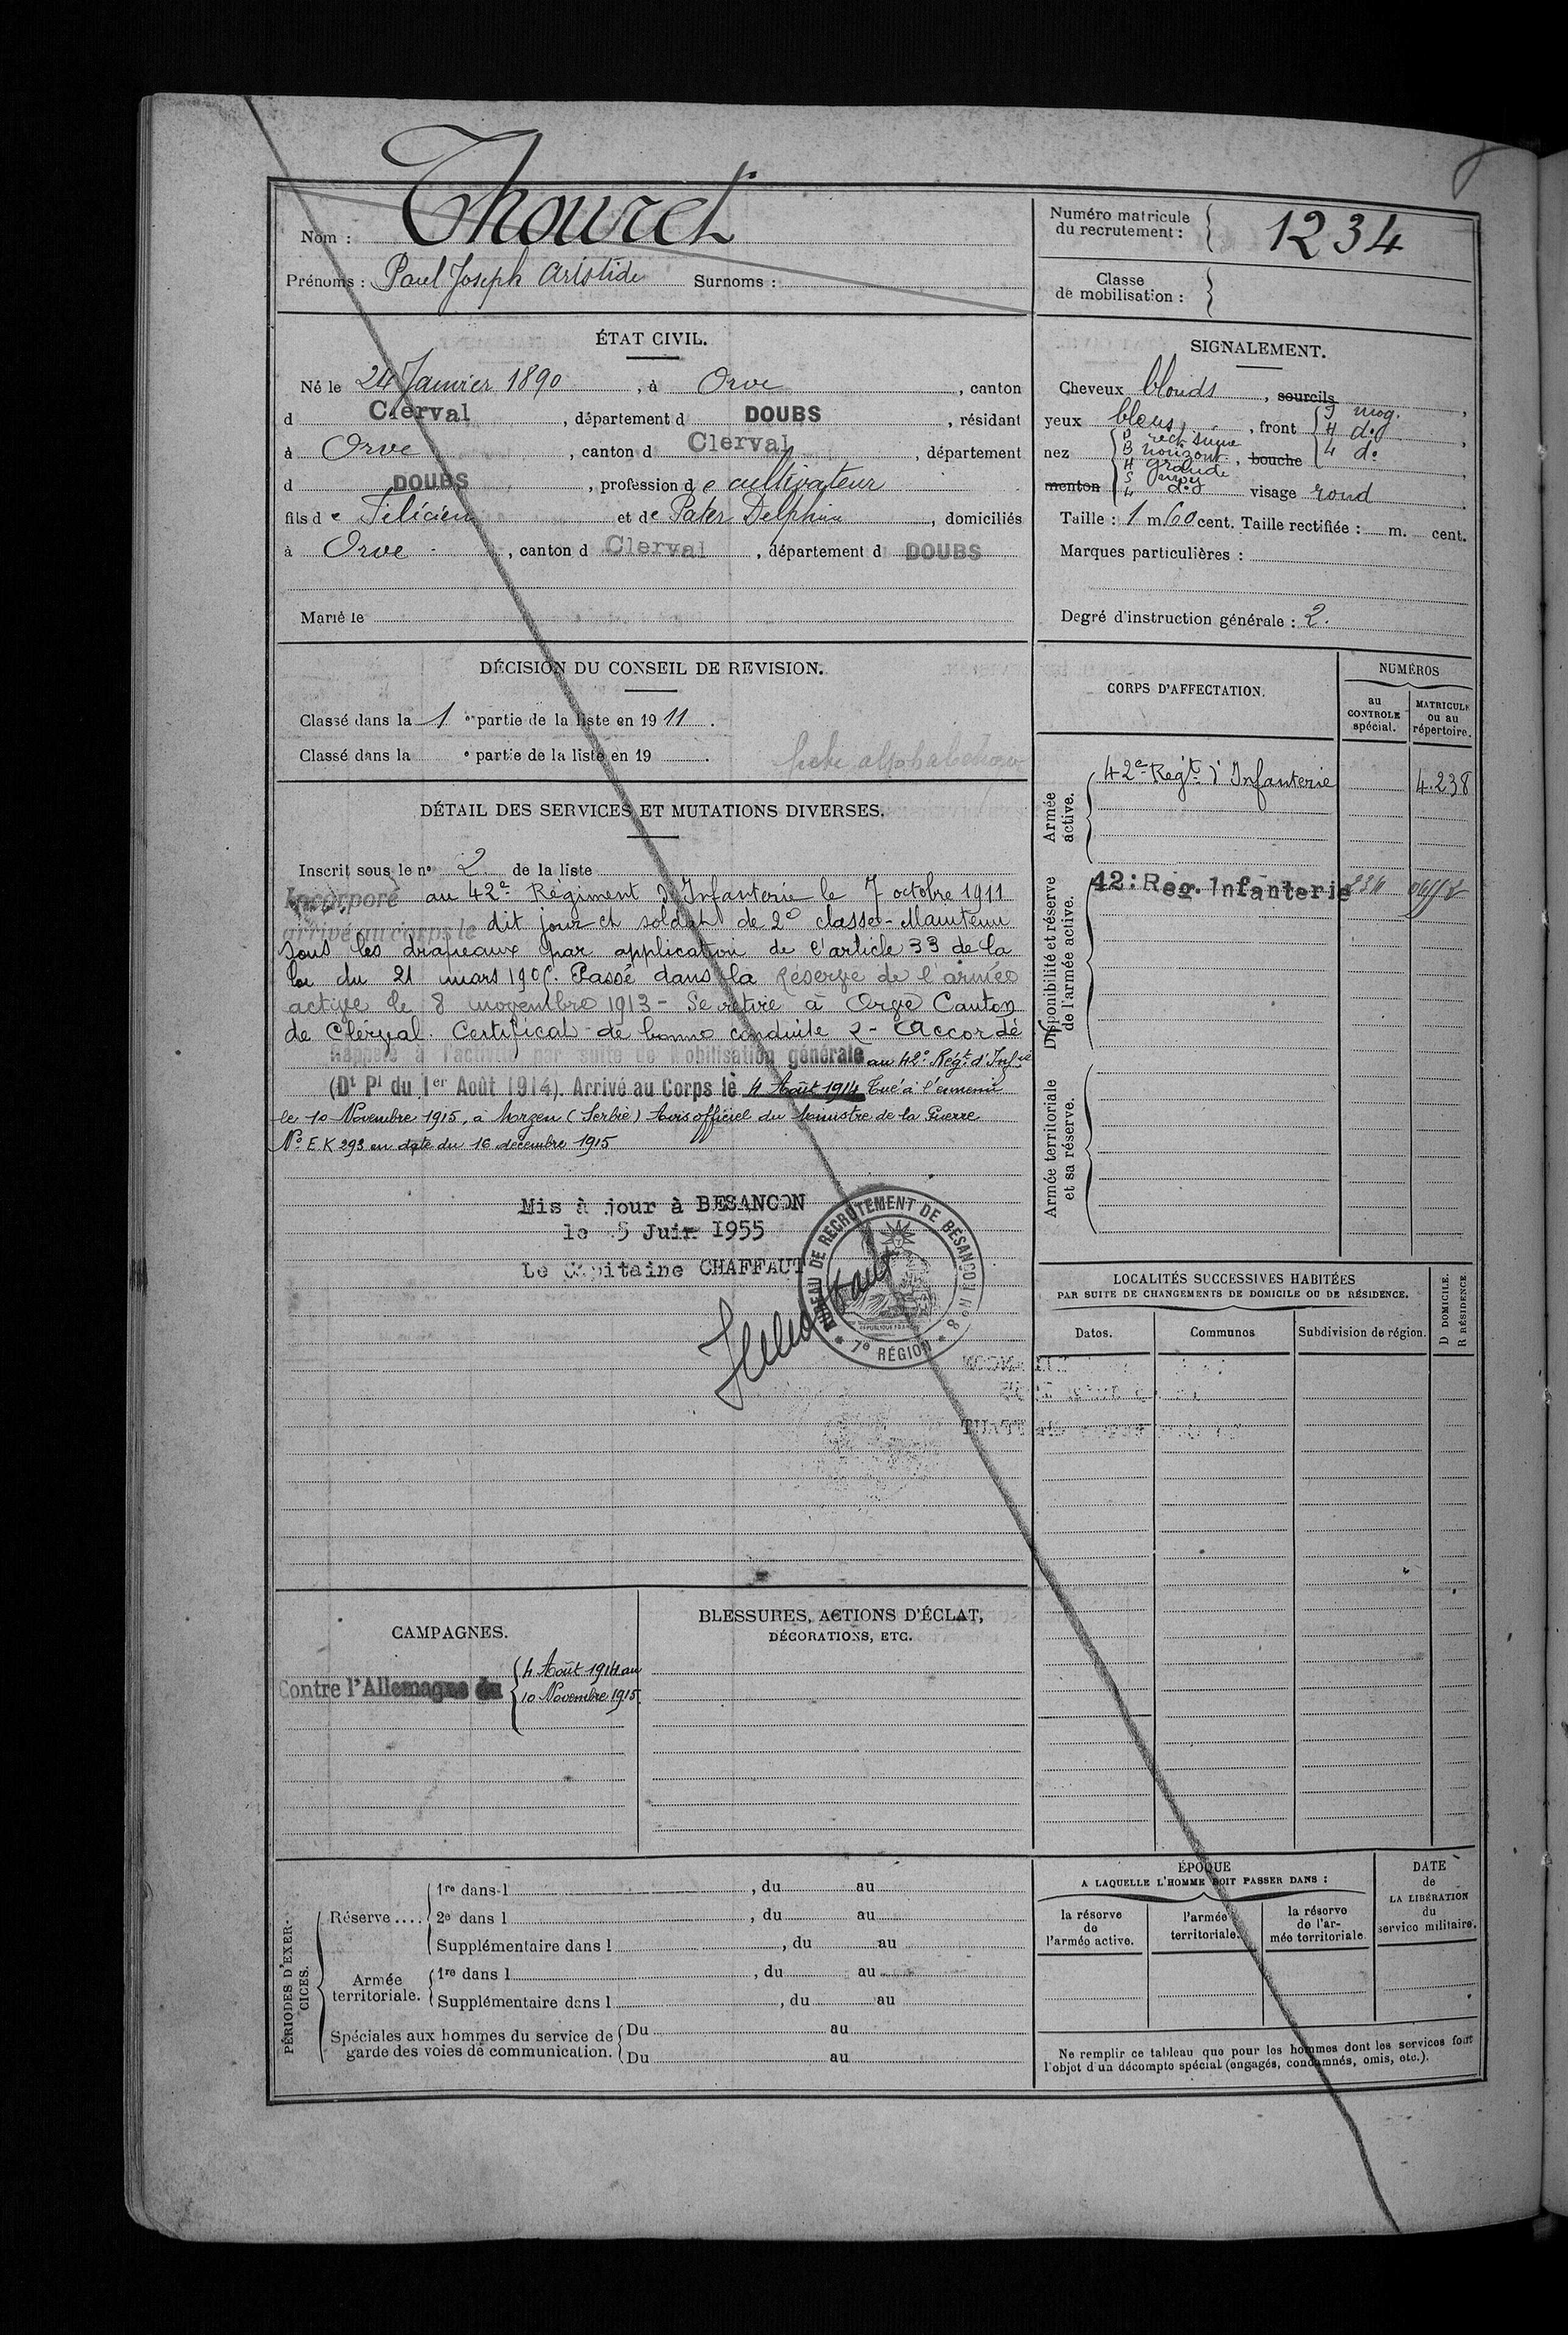 Thouret
Nom :
Prénoms : Paul Joseph Aristide Surnoms :
Numéro matricule du recrutement : 1234
Classe de mobilisation :
ÉTAT CIVIL.
Né le 24 Janvier 1890, à Orve, canton
d Clerval, département d DOUBS, résidant
à Orve, canton d Clerval, département
d DOUBS, profession de cultivateur
fils de Félicien et de Pater Delphine, domiciliés
à Orve, canton d Clerval, département d DOUBS
Marié le
SIGNALEMENT.
Cheveux blonds, sourcils
yeux bleus, front { J moy.
H do
L do
nez { D rect sinue
B horizont, bouche
H grande
S moy
L do
menton visage rond
Taille : 1 m 60 cent. Taille rectifiée : m. cent.
Marques particulières :
Degré d'instruction générale : 2.
DÉCISION DU CONSEIL DE REVISION.
Classé dans la 1 e partie de la liste en 1911.
Classé dans la e partie de la liste en 19 .
fiche alphabétique
DÉTAIL DES SERVICES ET MUTATIONS DIVERSES.
Inscrit sous le no 2 de la liste
Incorporé au 42e Régiment d'Infanterie le 7 octobre 1911
arrivé au corps le dit jour et soldat de 2e classe - Maintenu
sous les drapeaux par application de l'article 33 de la
loi du 21 mars 1905. Passé dans la Réserve de l'armée
active le 8 novembre 1913 - Se retire à Orve Canton
de Clerval. Certificat de bonne conduite 2 - Accordé
Rappelé à l'activité par suite de Mobilisation générale au 42e Régt d'Infie
(Dt Pl du 1er Août 1914). Arrivé au Corps le 4 Août 1914 Tué à l'ennemi
le 10 Novembre 1915, à Morzen (Serbie) Avis officiel du Ministre de la Guerre
No E.K 293 en date du 16 décembre 1915
Mis à jour à BESANCON
le 5 Juin 1955
Le Capitaine CHAFFAUT
BUREAU DE RECRUTEMENT DE BESANÇON No 8
* 7e RÉGION *
RÉPUBLIQUE FRANÇAISE
CORPS D'AFFECTATION.
NUMÉROS
au CONTROLE spécial.
MATRICULE ou au répertoire.
Armée active.
42e Regt d'Infanterie 4.238
Disponibilité et réserve de l'armée active.
42: Reg. Infanterie
Armée territoriale et sa réserve.
LOCALITÉS SUCCESSIVES HABITÉES
PAR SUITE DE CHANGEMENTS DE DOMICILE OU DE RÉSIDENCE.
Dates. Communes Subdivision de région.
D DOMICILE.
R RÉSIDENCE
CAMPAGNES.
Contre l'Allemagne du { 4 Août 1914 au
10 Novembre 1915.
BLESSURES, ACTIONS D'ÉCLAT,
DÉCORATIONS, ETC.
PÉRIODES D'EXERCICES.
Réserve.... 1re dans l , du au
2e dans l , du au
Supplémentaire dans l , du au
Armée territoriale. 1re dans l , du au
Supplémentaire dans l , du au
Spéciales aux hommes du service de garde des voies de communication. Du au
Du au
ÉPOQUE
A LAQUELLE L'HOMME DOIT PASSER DANS :
la réserve de l'armée active.
l'armée territoriale.
la réserve de l'armée territoriale
DATE de LA LIBÉRATION du service militaire.
Ne remplir ce tableau que pour les hommes dont les services font
l'objet d'un décompte spécial (engagés, condamnés, omis, etc.).